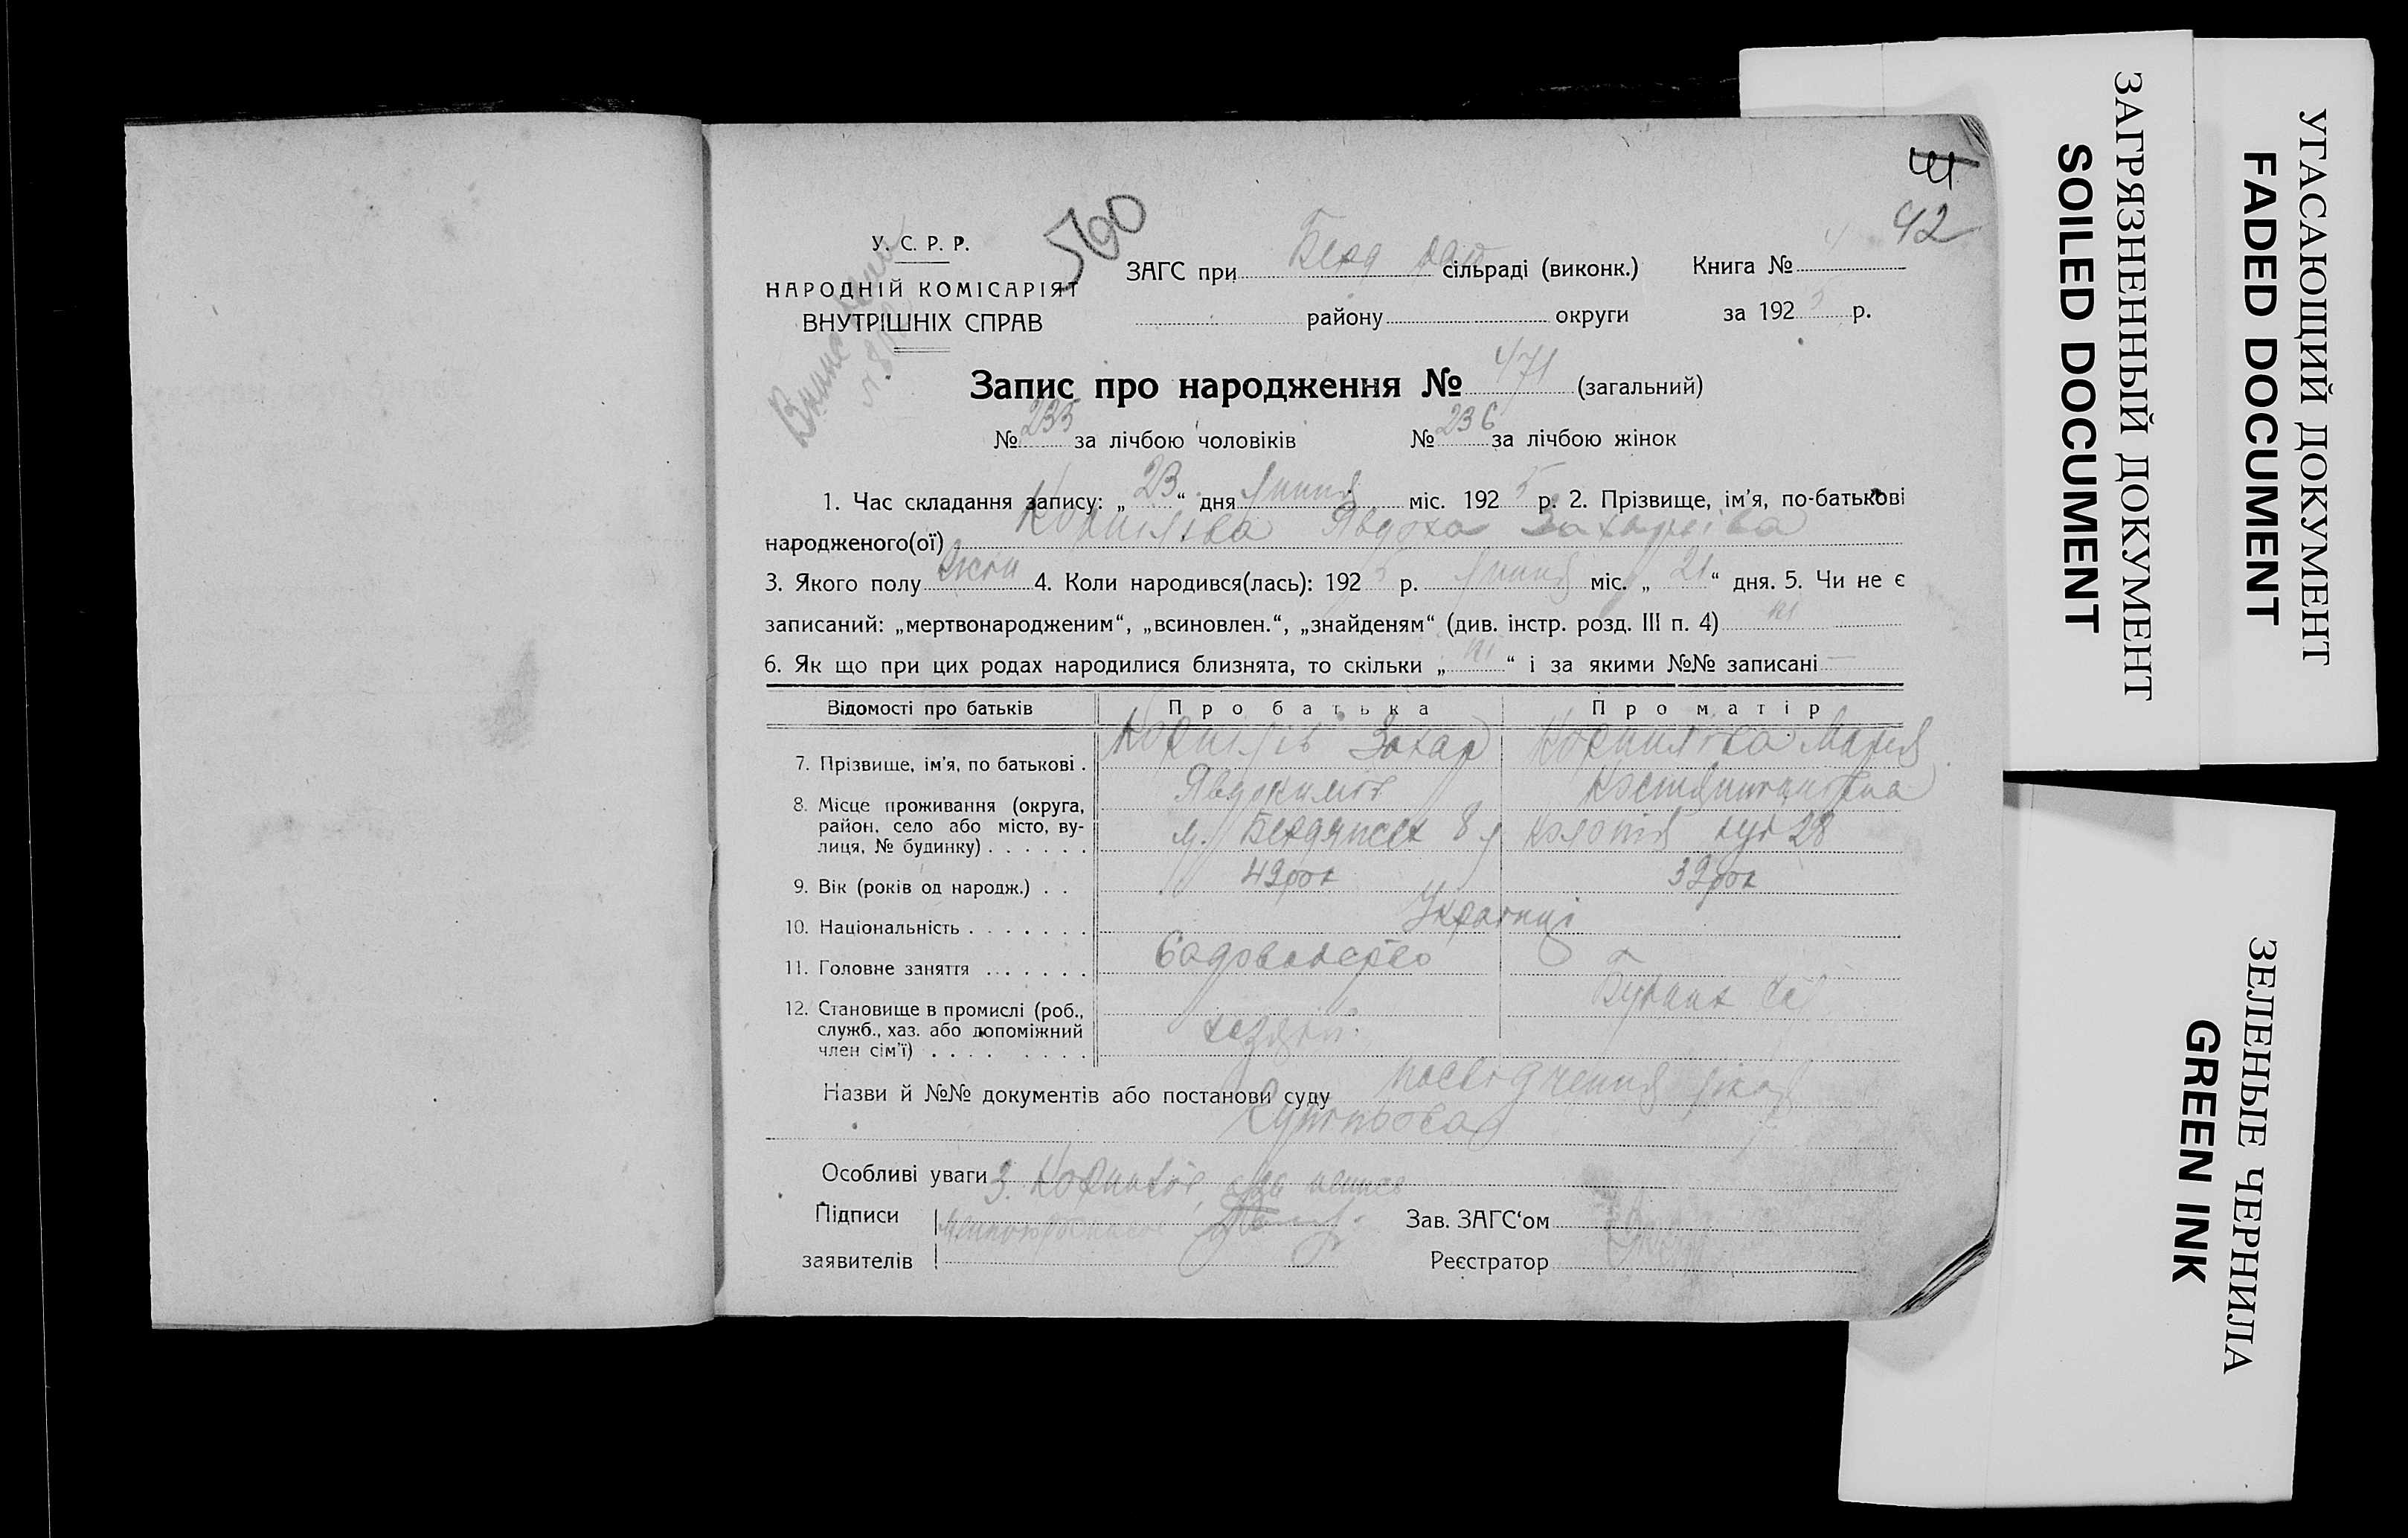 41
42
500
У. С. Р. Р.
НАРОДНІЙ КОМІСАРІЯТ
ВНУТРІШНІХ СПРАВ
ЗАГС при Берд рай сільраді (виконк.) Книга № 4
району округи за 1925 р.
Запис про народження № 471 (загальний)
№ 235 за лічбою чоловіків № 236 за лічбою жінок
1. Час складання запису: „23“ дня липня міс. 1925 р. 2. Прізвище, ім'я, по-батькові
народженого(ої) Корнілова Явдоха Захарівна
3. Якого полу жін 4. Коли народився(лась): 1925 р. липня міс. „21“ дня. 5. Чи не є
записаний: „мертвонародженим“, „всиновлен.“, „знайденям“ (див. інстр. розд. III п. 4) ні
6. Як що при цих родах народилися близнята, то скільки „ні“ і за якими №№ записані —
Відомості про батьків Про батька Про матір
7. Прізвище, ім'я, по батькові . Корнілів Захар Корнилова Марія
Явдокимов Костянтиновна
8. Місце проживання (округа,
район, село або місто, ву-
лиця, № будинку) . . . . . . м. Бердянськ 8 Колонія 28
9. Вік (років од народж.) . . 42 рок 32 рок
10. Національність . . . . . . . Українці
11. Головне заняття . . . . . . .
12. Становище в промислі (роб.,
служб., хаз. або допоміжний
член сім'ї) . . . . . . . . хазяїн
Назви й №№ документів або постанови суду посвідчення
Особливі уваги З. Корнилов
Підписи
заявителів
Зав. ЗАГС'ом
Реєстратор
ЗАГРЯЗНЕННЫЙ ДОКУМЕНТ
SOILED DOCUMENT
УГАСАЮЩИЙ ДОКУМЕНТ
FADED DOCUMENT
ЗЕЛЕНЫЕ ЧЕРНИЛА
GREEN INK